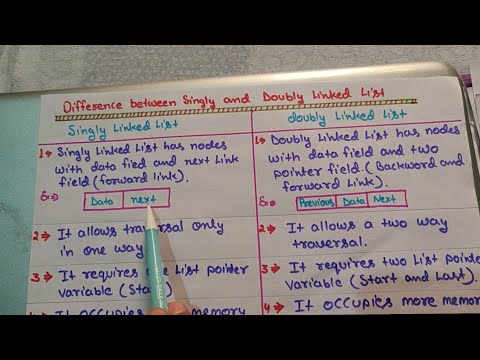 Difference between Singly and Doubly Linked List
Singly Linked List
1→ Singly Linked List has nodes
with data fied and next Link
field (forward link).
Ex→ Data next
2→ It allows traversal only
in one way
3→ It requires one List pointer
variable (Start)
4→ It occupies memory
doubly Linked List
1→ Doubly Linked List has nodes
with data field and two
pointer field. (Backword and
forward Link).
Ex→ Previous Data Next
2→ It allows a two way
traversal.
3→ It requires two List pointer
variable (Start and Last).
4→ It occupies more memory